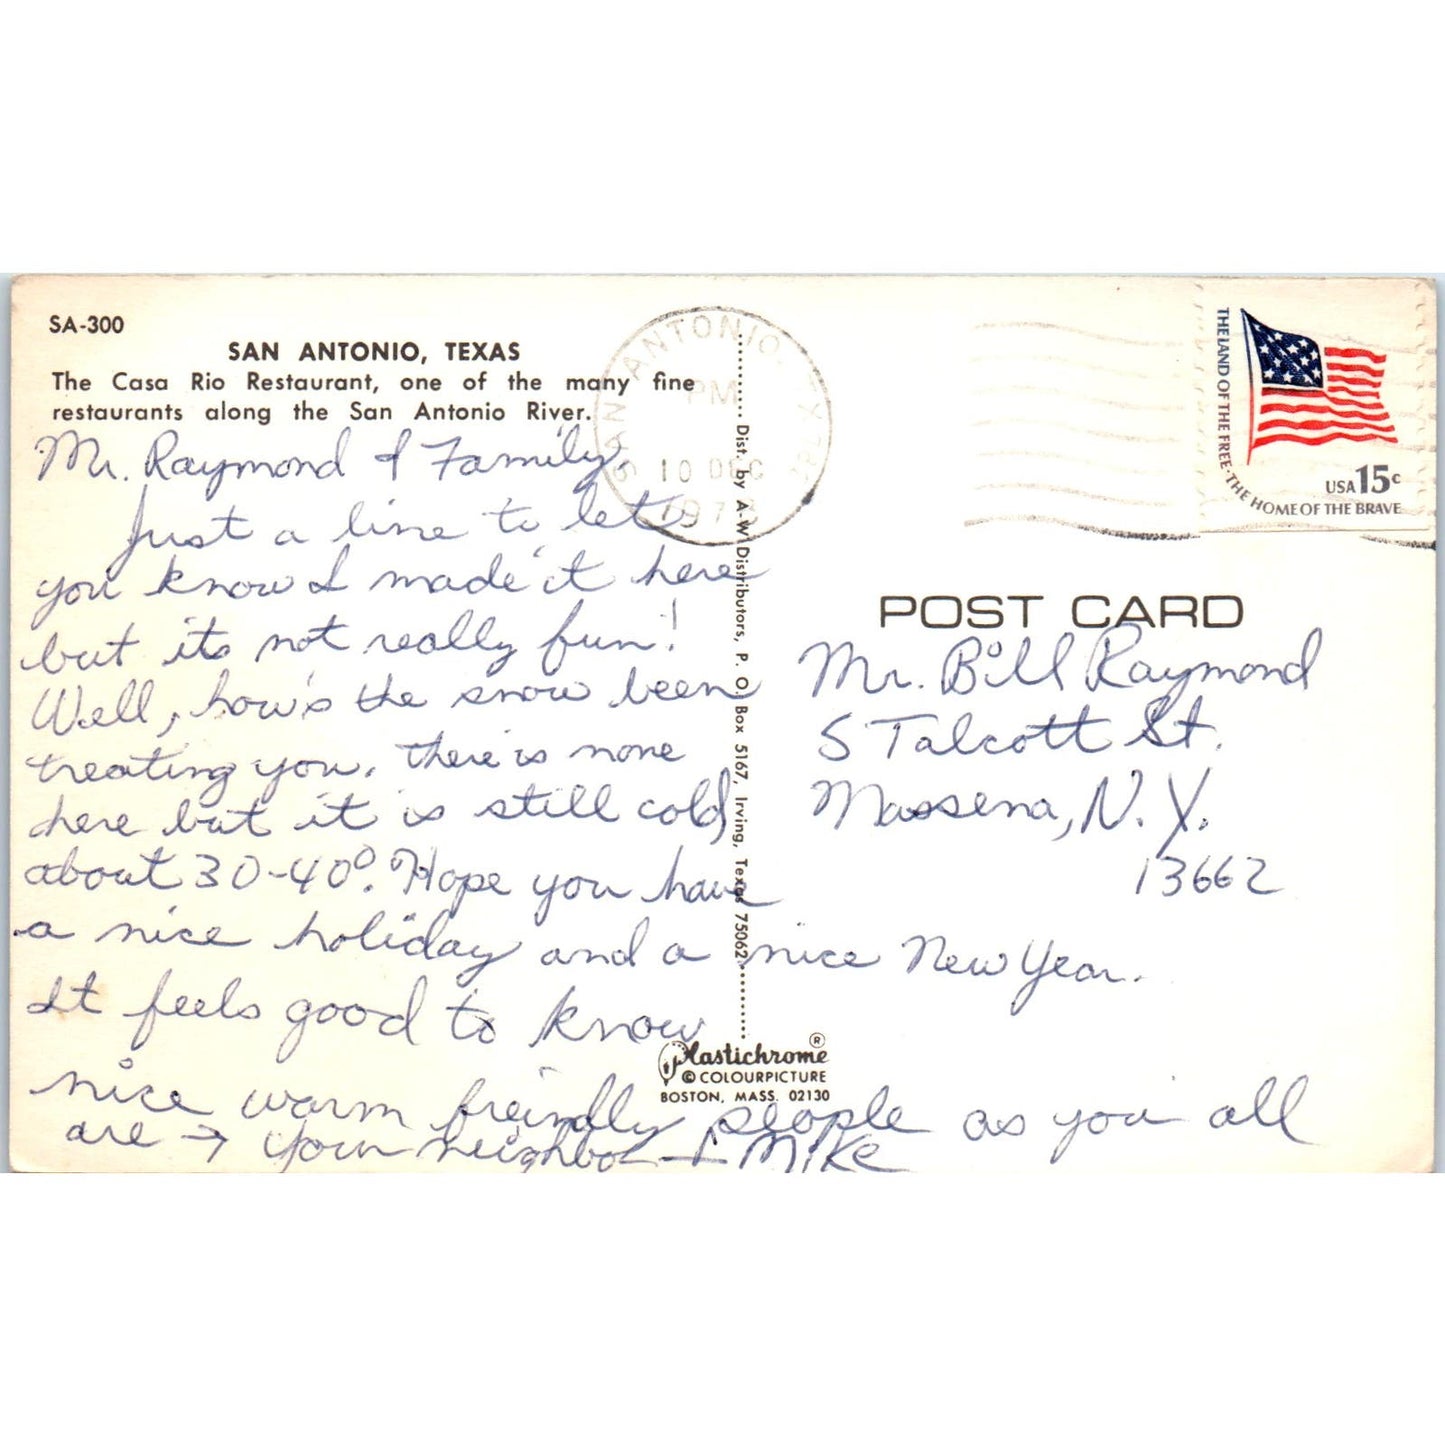 SA-300
SAN ANTONIO, TEXAS
The Casa Rio Restaurant, one of the many fine
restaurants along the San Antonio River.
Mr. Raymond & Family,
Just a line to let
you know I made it here
but its not really fun!
Well, how's the snow been
treating you. there is none
here but it is still cold
about 30-40°. Hope you have
a nice holiday and a nice New Year.
It feels good to know
nice warm freindly people as you all
are → Your neighbor Mike
Dist. by A-W Distributors, P. O. Box 5167, Irving, Texas 75062
Plastichrome ®
© COLOURPICTURE
BOSTON, MASS. 02130
SAN ANTONIO, TX
PM
10 DEC
THE LAND OF THE FREE · THE HOME OF THE BRAVE
USA 15c
POST CARD
Mr. Bill Raymond
5 Talcott St.
Massena, N.Y.
13662